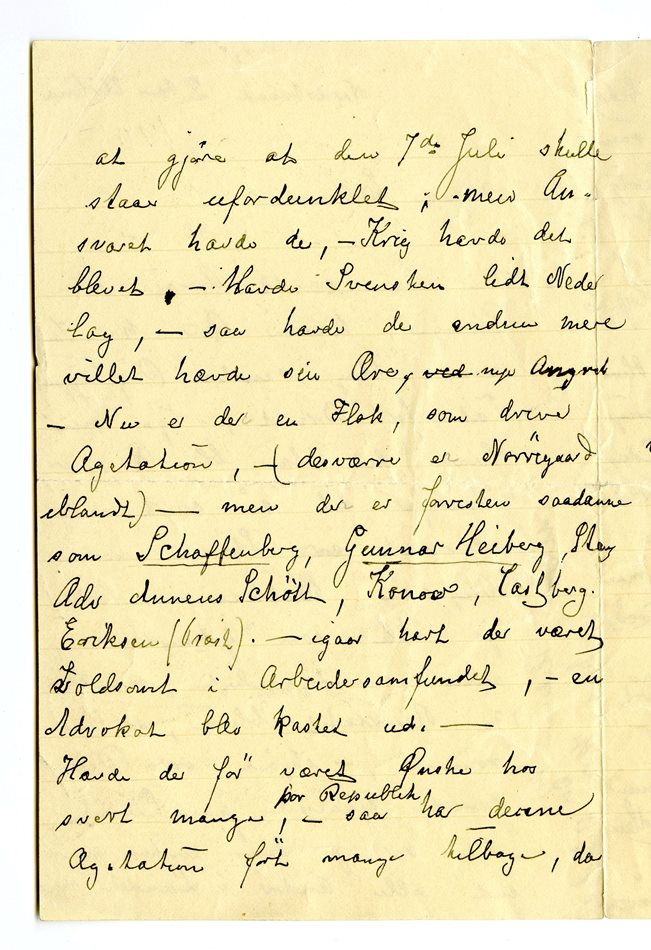 at gjöre at den 7de Juli skulle
staa ufordunklet; - men An-
svaret havde de, - Krig havde det
blevet. - Havde Svensken lidt Neder
lag, - saa havde de endnu mere
villet hævde sin Ære, ved nye Angreb
- Nu er der en Flok, som drive
Agetation, - (desværre er Nörregaard
iblandt) - men der er forresten saadanne
som Scharffenberg, Gunnar Heiberg,
Adv Schött, Konow, Castberg.
Eriksen (Præst). - igaar hart der været
Voldsomt i Arbeidersamfundet, - en
Advokat blev kastet ud. -
Havde der för været Önske hos
svert mange, for Republik - saa har denne
Agetation fört mange tilbage, da